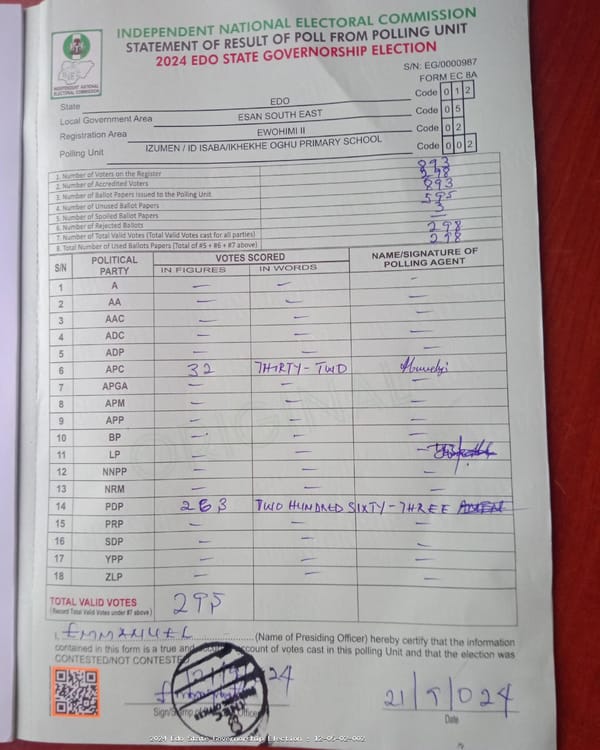 INDEPENDENT NATIONAL ELECTORAL COMMISSION
STATEMENT OF RESULT OF POLL FROM POLLING UNIT
2024 EDO STATE GOVERNORSHIP ELECTION
INDEPENDENT NATIONAL ELECTORAL COMMISSION
S/N: EG/0000987
FORM EC 8A
State EDO Code 0 1 2
Local Government Area ESAN SOUTH EAST Code 0 5
Registration Area EWOHIMI II Code 0 2
Polling Unit IZUMEN / ID ISABA/IKHEKHE OGHU PRIMARY SCHOOL Code 0 0 2
1. Number of Voters on the Register 893
2. Number of Accredited Voters 298
3. Number of Ballot Papers Issued to the Polling Unit 893
4. Number of Unused Ballot Papers 595
5. Number of Spoiled Ballot Papers 3
6. Number of Rejected Ballots —
7. Number of Total Valid Votes (Total Valid Votes cast for all parties) 298
8. Total Number of Used Ballots Papers (Total of #5 + #6 + #7 above) 298
S/N POLITICAL PARTY VOTES SCORED NAME/SIGNATURE OF POLLING AGENT
IN FIGURES IN WORDS
1 A — — —
2 AA — — —
3 AAC — — —
4 ADC — — —
5 ADP — — —
6 APC 32 THIRTY-TWO
7 APGA — — —
8 APM — — —
9 APP — — —
10 BP — — —
11 LP — — —
12 NNPP — — —
13 NRM — — —
14 PDP 263 TWO HUNDRED SIXTY-THREE
15 PRP — — —
16 SDP — — —
17 YPP — — —
18 ZLP — — —
TOTAL VALID VOTES 295
(Record Total Valid Votes under #7 above)
I, EMMANUEL (Name of Presiding Officer) hereby certify that the information
contained in this form is a true and account of votes cast in this polling Unit and that the election was
CONTESTED/NOT CONTESTED
21/9/2024
Sign/Stamp Officer
Date
2024 Edo State Governorship Election - 12-05-02-002